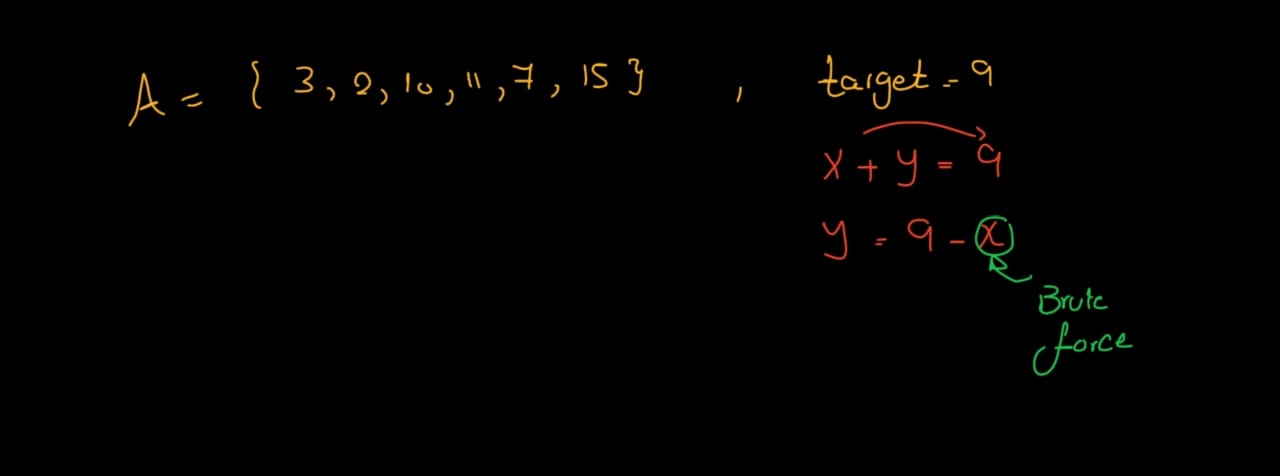 A = { 3, 2, 10, 11, 7, 15 } , target = 9
x + y = 9
y = 9 - x
Brute
force